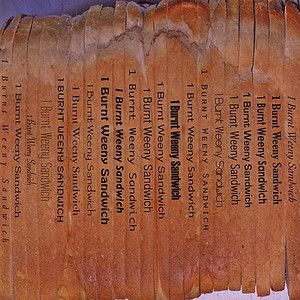 1 Burnt Weeny Sandwich
1 Burnt Weeny Sandwich
1 Burnt Weeny Sandwich
1 Burnt Weeny Sandwich
1 BURNT WEENY SANDWICH
1 Burnt Weeny Sandwich
1 Burnt Weeny Sandwich
1 Burnt Weeny Sandwich
1 Burnt Weeny Sandwich
1 Burnt Weeny Sandwich
1 Burnt Weeny Sandwich
1 Burnt Weeny Sandwich
1 Burnt Weeny Sandwich
1 Burnt Weeny Sandwich
1 BURNT WEENY SANDWICH
1 Burnt Weeny Sandwich
1 Burnt Weeny Sandwich
1 Burnt Weeny Sandwich
1 Burnt Weeny Sandwich
1 Burnt Weeny Sandwich
1 Burnt Weeny Sandwich